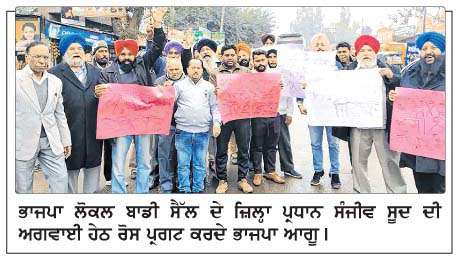 ਭਾਜਪਾ ਲੋਕਲ ਬਾਡੀ ਸੈੱਲ ਦੇ ਜ਼ਿਲ੍ਹਾ ਪ੍ਰਧਾਨ ਸੰਜੀਵ ਸੂਦ ਦੀ
ਅਗਵਾਈ ਹੇਠ ਰੋਸ ਪ੍ਰਗਟ ਕਰਦੇ ਭਾਜਪਾ ਆਗੂ।